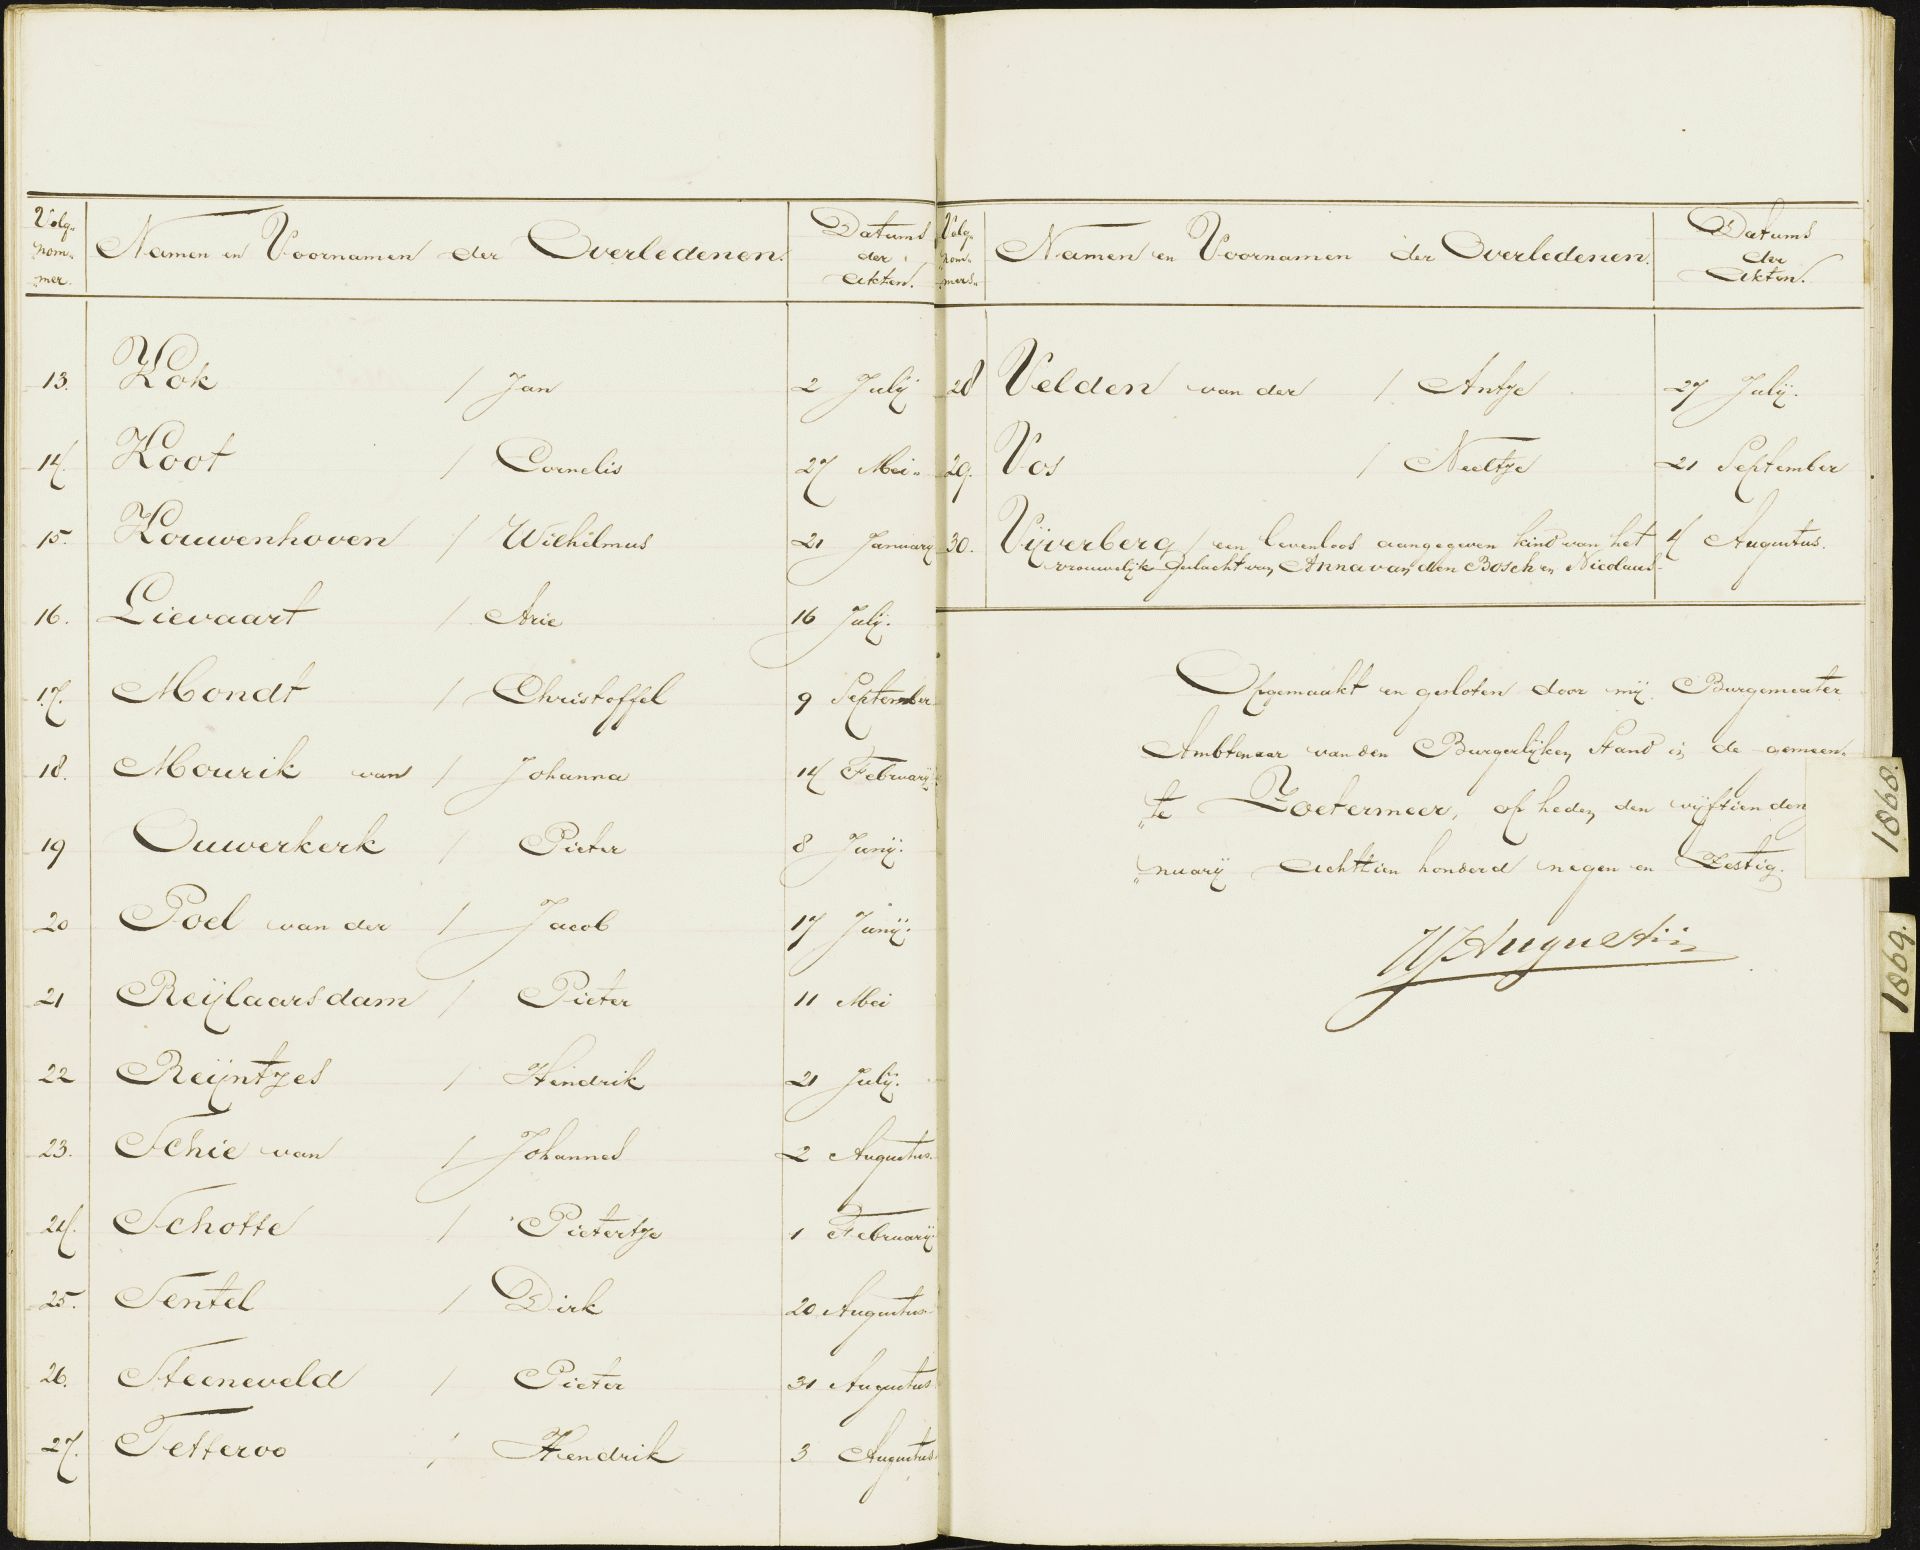 Volg-
nom-
mer.
Namen en Voornamen der Overledenen.
Datums
der
Akten.
13. Kok / Jan 2 Julij
14. Koot / Cornelis 27 Mei
15. Kouwenhoven / Wilhelmus 21 Januarij
16. Lievaart / Arie 16 Julij.
17. Mondt / Christoffel 9 September
18. Mourik van / Johanna 14 Februarij
19 Ouwerkerk / Pieter 8 Junij.
20 Poel van der / Jacob 17 Junij.
21 Reijlaarsdam / Pieter 11 Mei
22 Reijntjes / Hendrik 21 Julij.
23. Schie van / Johannes 2 Augustus.
24. Schotte / Pietertje 1 Februarij.
25. Sentel / Dirk 20 Augustus.
26. Steeneveld / Pieter 31 Augustus
27. Tetteroo / Hendrik 3 Augustus.
Volg-
nom-
mers.
Namen en Voornamen der Overledenen.
Datums
der
Akten.
28 Velden van der / Antje 27 Julij.
29. Vos / Neeltje 21 September
30. Vijverberg / een levenloos aangegeven kind van het 4 Augustus.
vrouwelijk geslacht van Anna van den Bosch en Nicolaus
Opgemaakt en gesloten door mij Burgemeester
Ambtenaar van den Burgerlijken Stand in de gemeen-
te Zoetermeer, op heden den vijftienden
nuarij achttien honderd negen en Zestig.
Augustijn
1868.
1869.